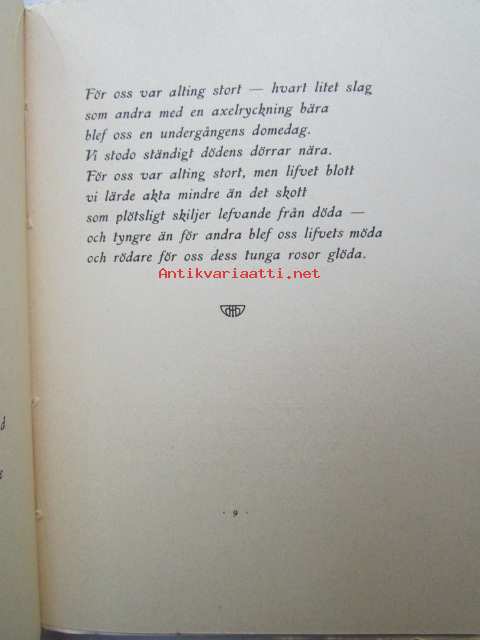 För oss var alting stort — hvart litet slag
som andra med en axelryckning bära
blef oss en undergångens domedag.
Vi stodo ständigt dödens dörrar nära.
För oss var alting stort, men lifvet blott
vi lärde akta mindre än det skott
som plötsligt skiljer lefvande från döda —
och tyngre än för andra blef oss lifvets möda
och rödare för oss dess tunga rosor glöda.
Antikvariaatti.net
d
e
· 9 ·